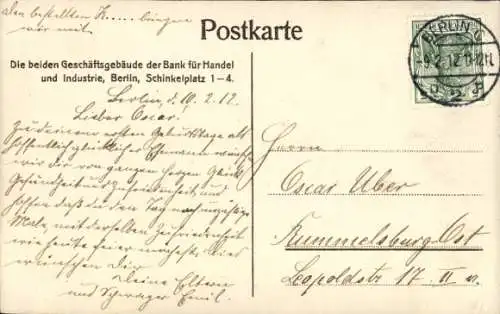 den bestellten K..... bringen
wir mit.
Postkarte
Die beiden Geschäftsgebäude der Bank für Handel
und Industrie, Berlin, Schinkelplatz 1–4.
BERLIN C
-9.2.12.11-12V.
* 2 d
Berlin, d. 10. 2. 12.
Lieber Oscar.
Zu deinem ersten Geburtstage als
hoffentlich glücklicher Ehemann wünschen
wir dir von ganzen Herzen Glück
Gesundheit und Zufriedenheit und
hoffen daß du den Tag noch unzählige
Male, mit derselben Zufriedenheit
wie heute feiern mögest. Dies
wünschen Dir
Deine Eltern
und Schwager Emil.
Herrn
Oscar Uber
Rummelsburg Ost
Leopoldstr. 17. II